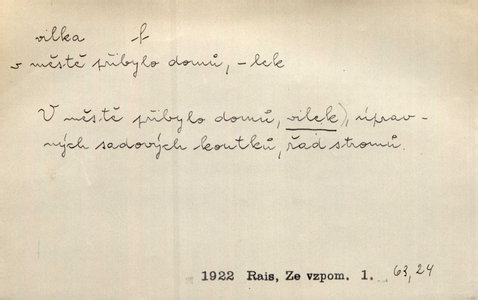 vilka f
v městě přibylo domů, -lek
V městě přibylo domů, vilek), úprav-
ných sadových koutků, řad stromů.
1922 Rais, Ze vzpom. 1. 63, 24